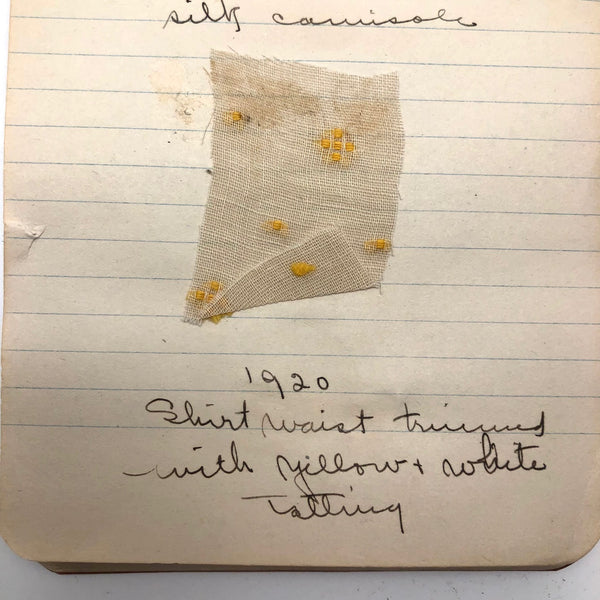 silk camisole
1920
Shirt waist trimmed
with yellow + white
Tatting